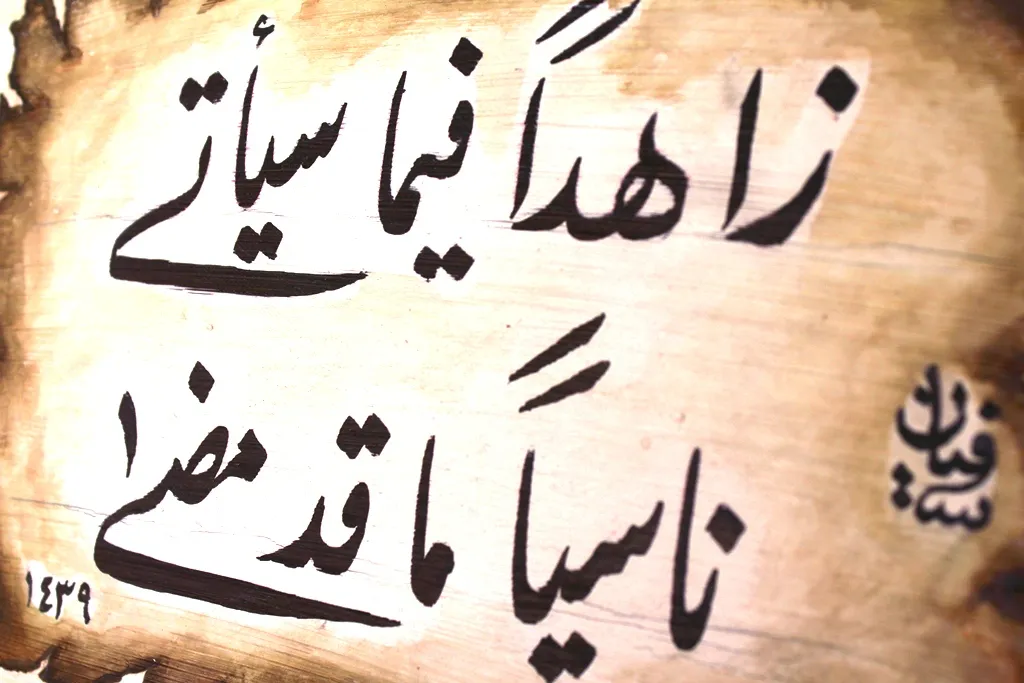 زاهدًا فيما سيأتي
ناسيًا ما قد مضى
سفيان
١٤٣٩